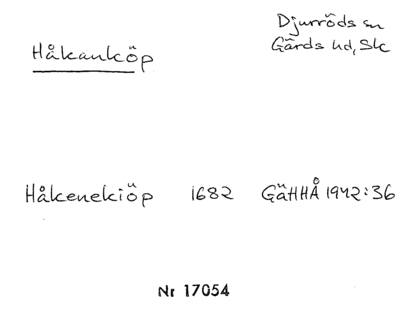 Djurröds sn
Gärds hd, Sk
Håkanköp
Håkenekiöp 1682 GäHHÅ 1942:36
Nr 17054